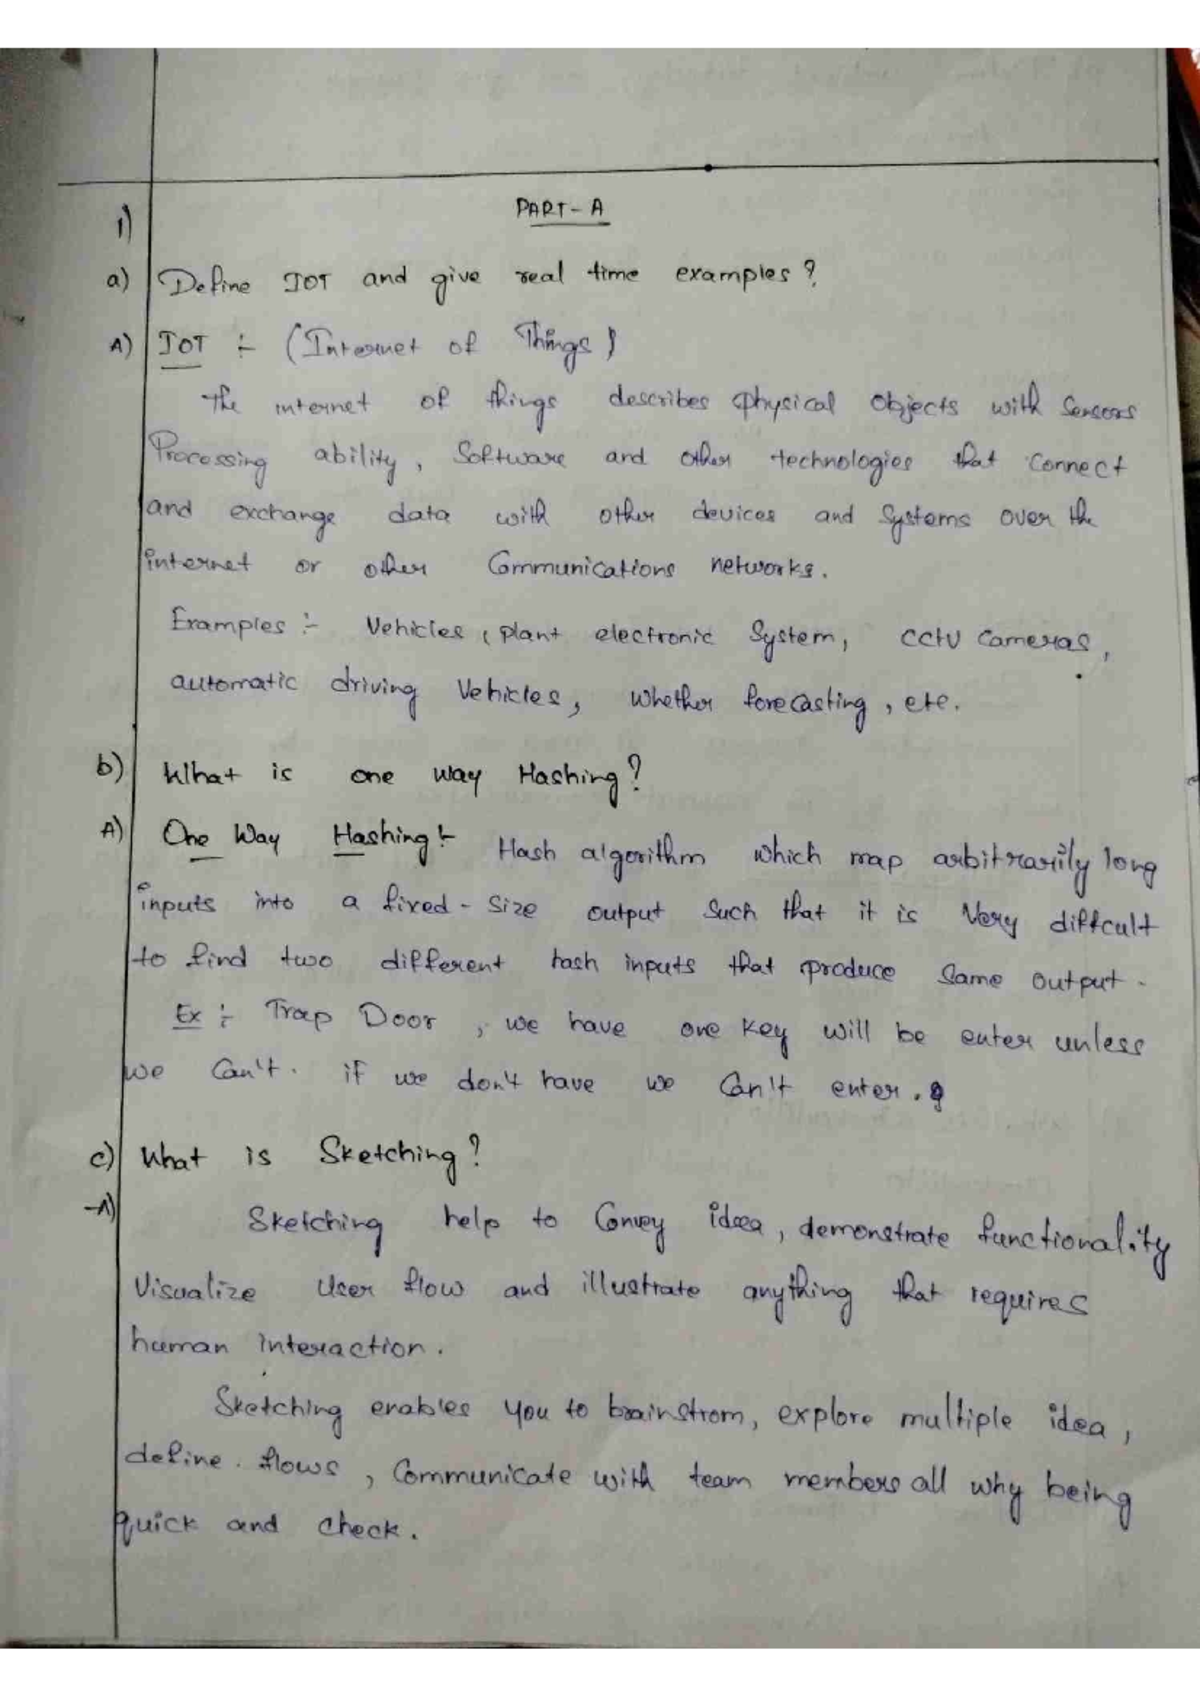 PART-A
1)
a) Define IOT and give real time examples?
A) IOT :- (Internet of Things)
The internet of things describes physical objects with Sensors
Processing ability, Software and other technologies that connect
and exchange data with other devices and Systems over the
internet or other Communications networks.
Examples :- Vehicles, plant electronic System, CCtv Cameras,
automatic driving Vehicles, Whether forecasting, etc.
b) What is one way Hashing?
A) One Way Hashing:- Hash algorithm which map arbitrarily long
inputs into a fixed-size output such that it is Very diffcult
to find two different hash inputs that produce Same output.
Ex :- Trap Door, we have one key will be enter unless
we Can't. if we don't have we Can't enter.
c) What is Sketching?
A)
Sketching help to Convey idea, demonstrate functionality
Visualize User flow and illustrate anything that requires
human interaction.
Sketching enables you to brainstrom, explore multiple idea,
define flows, Communicate with team members all why being
quick and check.